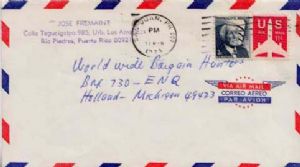 JOSE FREMAINT
Calle Tegucigalpa 985, Urb. Las Americas
Rio Piedras, Puerto Rico 00921
SAN JUAN, PR
PM
U.S.
11¢
World Wide Bargain Hunters
Box 730-ENQ
Holland-Michigan 49423
VIA AIR MAIL
CORREO AEREO
PAR AVION